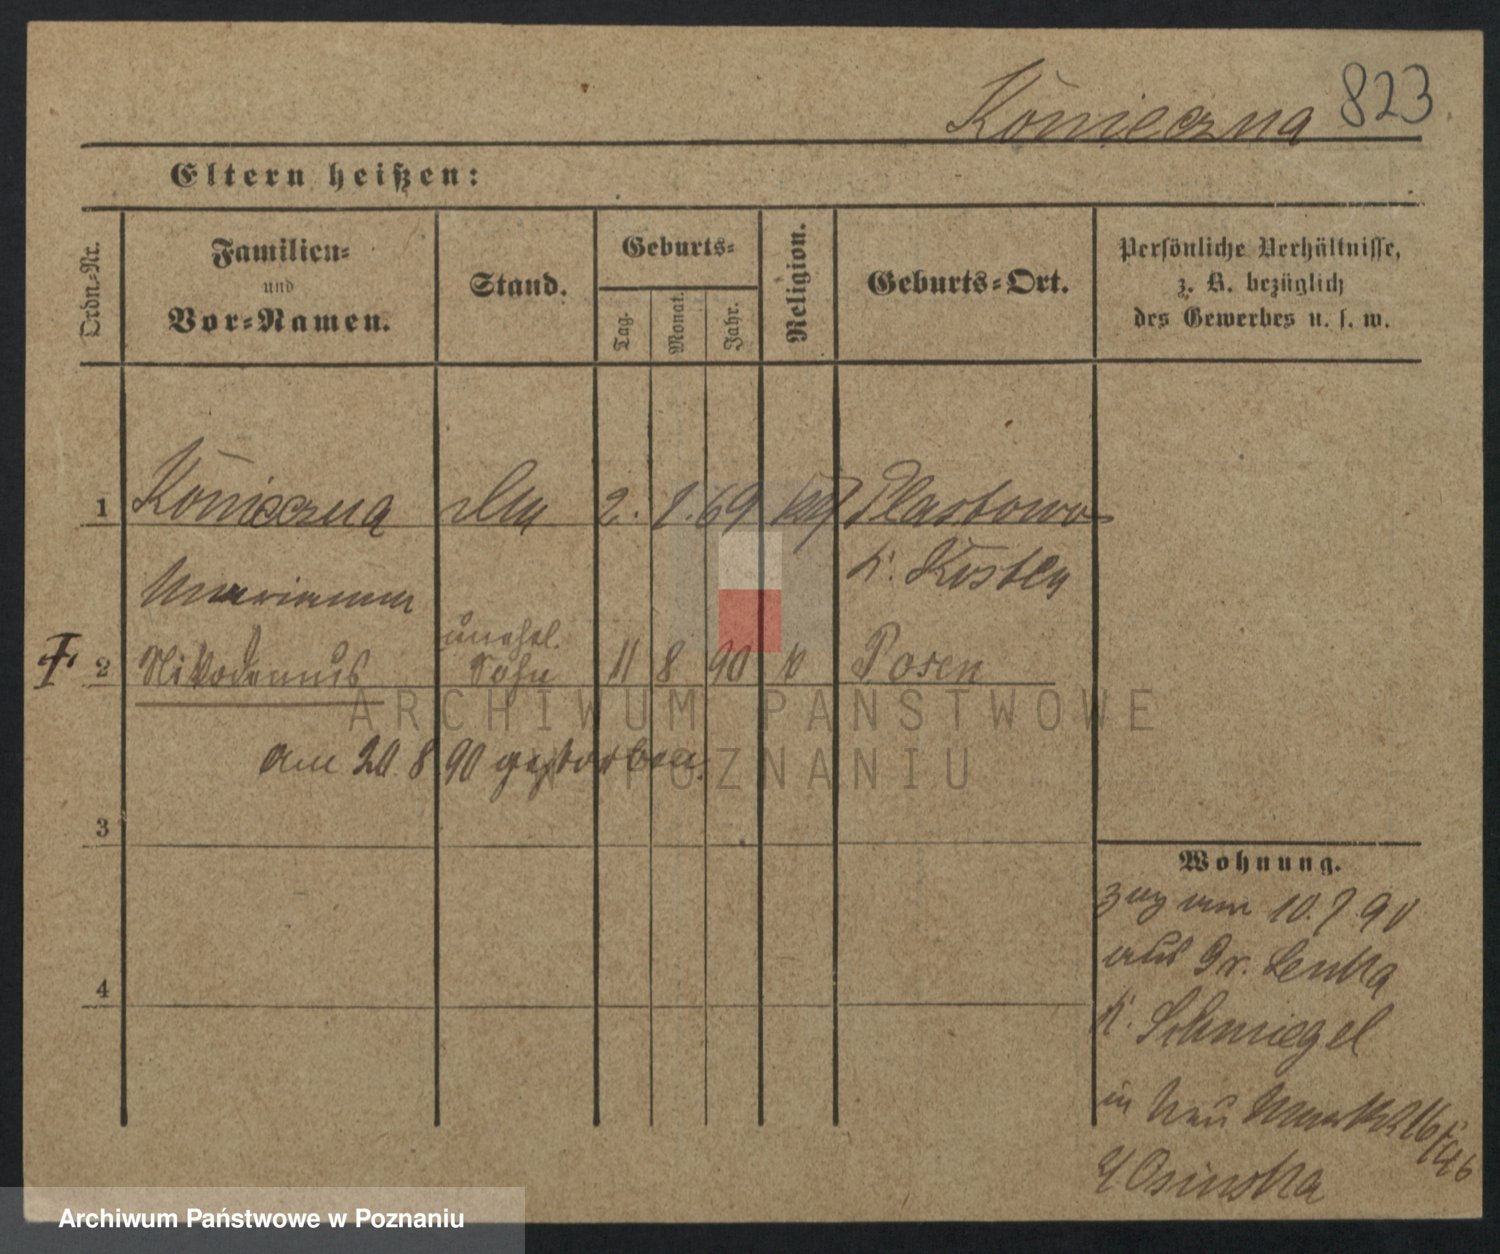 Konieczna 823.
Eltern heißen:
Ordn.-Nr.
Familien-
und
Vor-Namen.
Stand.
Geburts-
Tag.
Monat.
Jahr.
Religion.
Geburts-Ort.
Persönliche Verhältnisse,
z. B. bezüglich
des Gewerbes u. s. w.
1 Konieczna 2. 69 Plastowo
K. Kosten
Marianna
unehel.
2 Nikodemus Sohn 11 8 90 k Posen
am 20. 8 90 gestorben.
ARCHIWUM PAŃSTWOWE
W POZNANIU
3
4
Wohnung.
zug von 10. 7 90
aus Gr. Lenka
K. Schmiegel
in Neu
Osinska
Archiwum Państwowe w Poznaniu